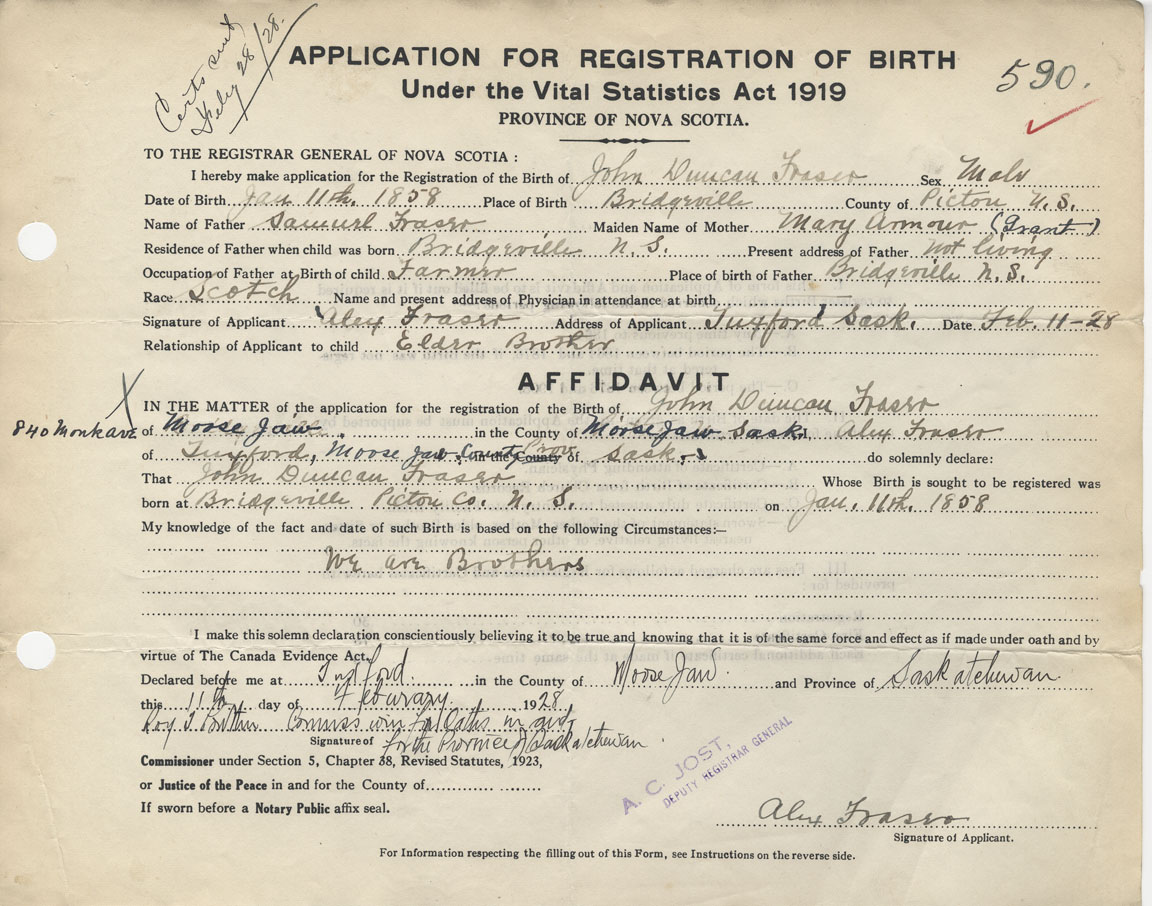 Certs sent
Feby 28/28.
APPLICATION FOR REGISTRATION OF BIRTH
590.
Under the Vital Statistics Act 1919
PROVINCE OF NOVA SCOTIA.
TO THE REGISTRAR GENERAL OF NOVA SCOTIA :
I hereby make application for the Registration of the Birth of John Duncan Fraser Sex Male
Date of Birth Jan 11th. 1858 Place of Birth Bridgeville County of Picton N.S.
Name of Father Samuel Fraser Maiden Name of Mother Mary Armour (Grant)
Residence of Father when child was born Bridgeville N.S. Present address of Father not living
Occupation of Father at Birth of child Farmer Place of birth of Father Bridgeville N.S.
Race Scotch Name and present address of Physician in attendance at birth
Signature of Applicant Alex Fraser Address of Applicant Tuxford Sask. Date Feb. 11-28
Relationship of Applicant to child Elder Brother
AFFIDAVIT
X
IN THE MATTER of the application for the registration of the Birth of John Duncan Fraser
840 Monk ave of Moose Jaw in the County of Moose Jaw Sask I, Alex Fraser
of Tuxford, Moose Jaw County in the County Prov of Sask. do solemnly declare:
That John Duncan Fraser Whose Birth is sought to be registered was
born at Bridgeville Picton Co. N.S. on Jan. 11th. 1858
My knowledge of the fact and date of such Birth is based on the following Circumstances:—
We are Brothers
I make this solemn declaration conscientiously believing it to be true and knowing that it is of the same force and effect as if made under oath and by
virtue of The Canada Evidence Act.
Declared before me at Tuxford in the County of Moose Jaw and Province of Saskatchewan
this 11th day of February 1928
Roy Commissioner for Oaths in and
Signature of for the Province of Saskatchewan.
Commissioner under Section 5, Chapter 38, Revised Statutes, 1923,
or Justice of the Peace in and for the County of
If sworn before a Notary Public affix seal.
A. C. JOST,
DEPUTY REGISTRAR GENERAL
Alex Fraser
Signature of Applicant.
For Information respecting the filling out of this Form, see Instructions on the reverse side.